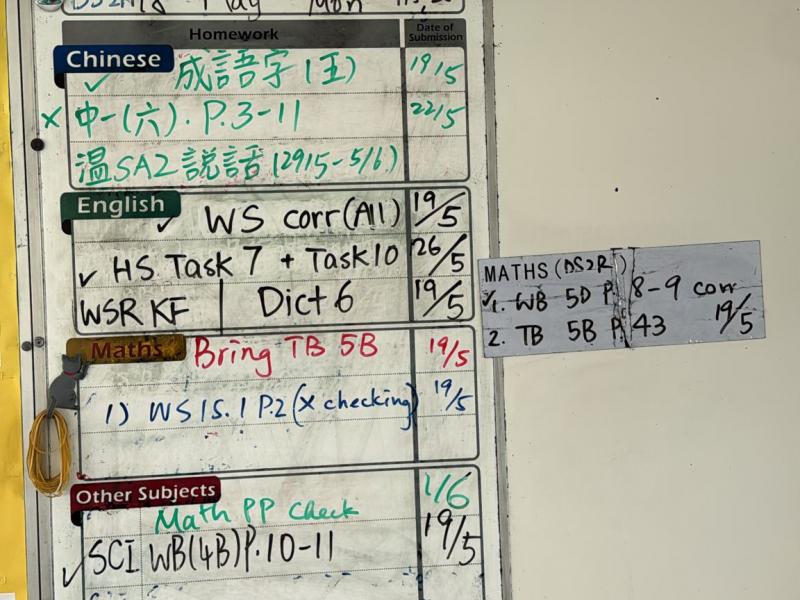 May Mon
Homework Date of Submission
Chinese
✓ 成語字(五) 19/5
× 中一(六). P.3-11 22/5
溫SA2說話(29/5-5/6)
English
✓ WS corr(All) 19/5
✓ HS Task 7 + Task 10 26/5
WSR KF | Dict 6 19/5
Maths Bring TB 5B 19/5
1) WS 15.1 P.2 (× checking) 19/5
Other Subjects
Math PP check 1/6
✓ SCI WB(4B) P.10-11 19/5
MATHS (DS2R)
✓1. WB 5D P. 8-9 corr
2. TB 5B P. 43 19/5